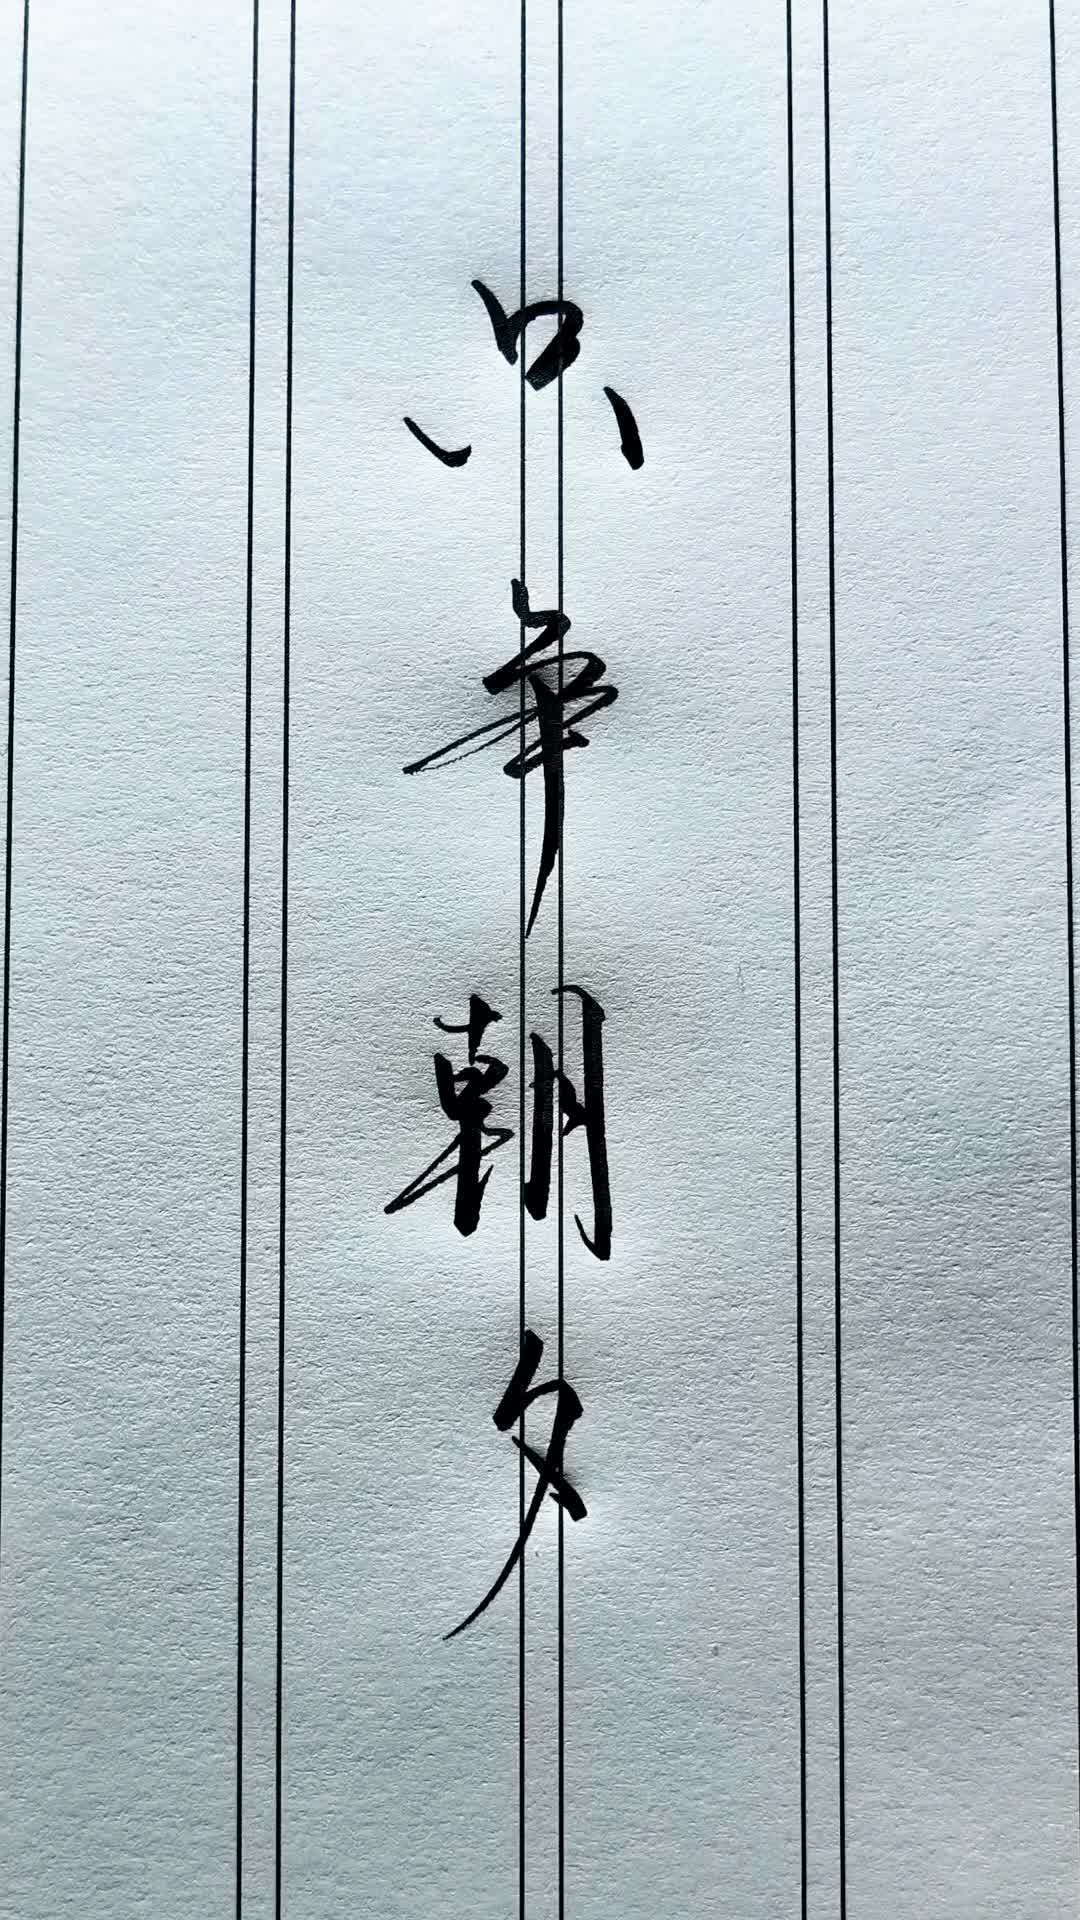 只争朝夕